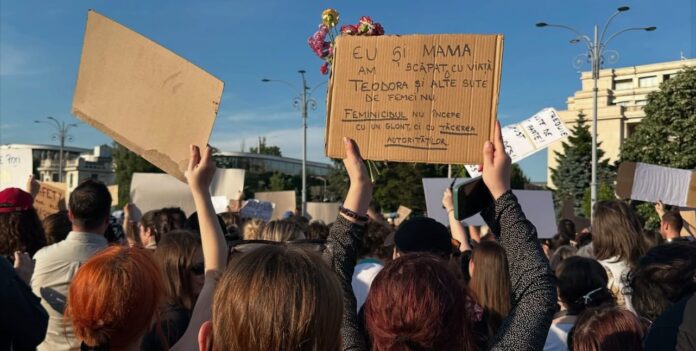 EU ȘI MAMA
AM SCĂPAT CU VIAȚĂ
TEODORA ȘI ALTE SUTE
DE FEMEI NU.
FEMINICIDUL NU ÎNCEPE
CU UN GLONȚ, CI CU TĂCEREA
AUTORITĂȚILOR